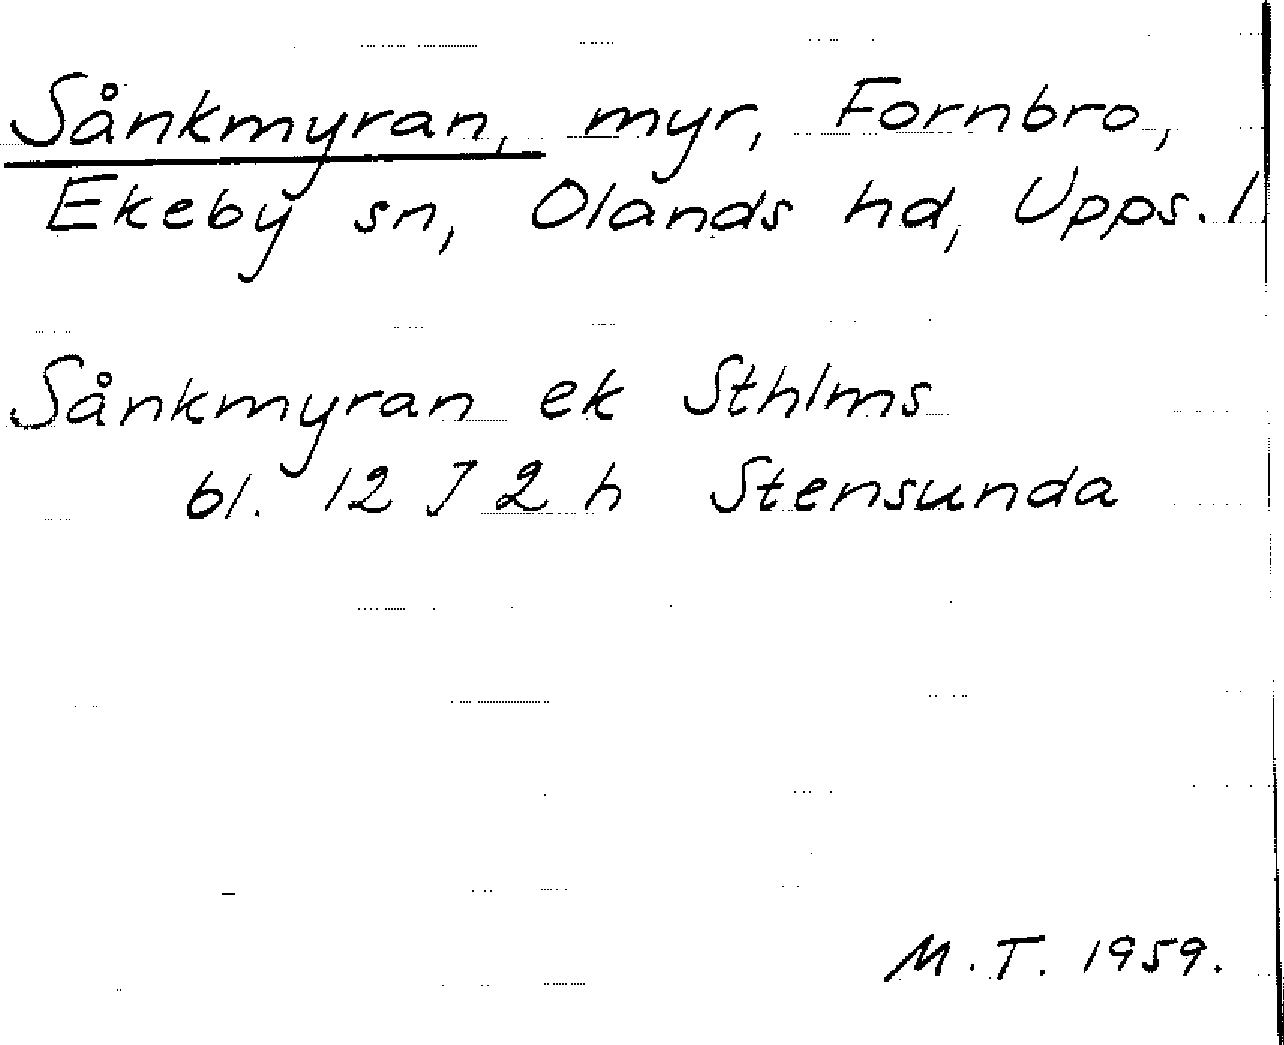 Sånkmyran, myr, Fornbro,
Ekeby sn, Olands hd, Upps. l
Sånkmyran ek Sthlms
bl. 12 I 2 h Stensunda
M.T. 1959.